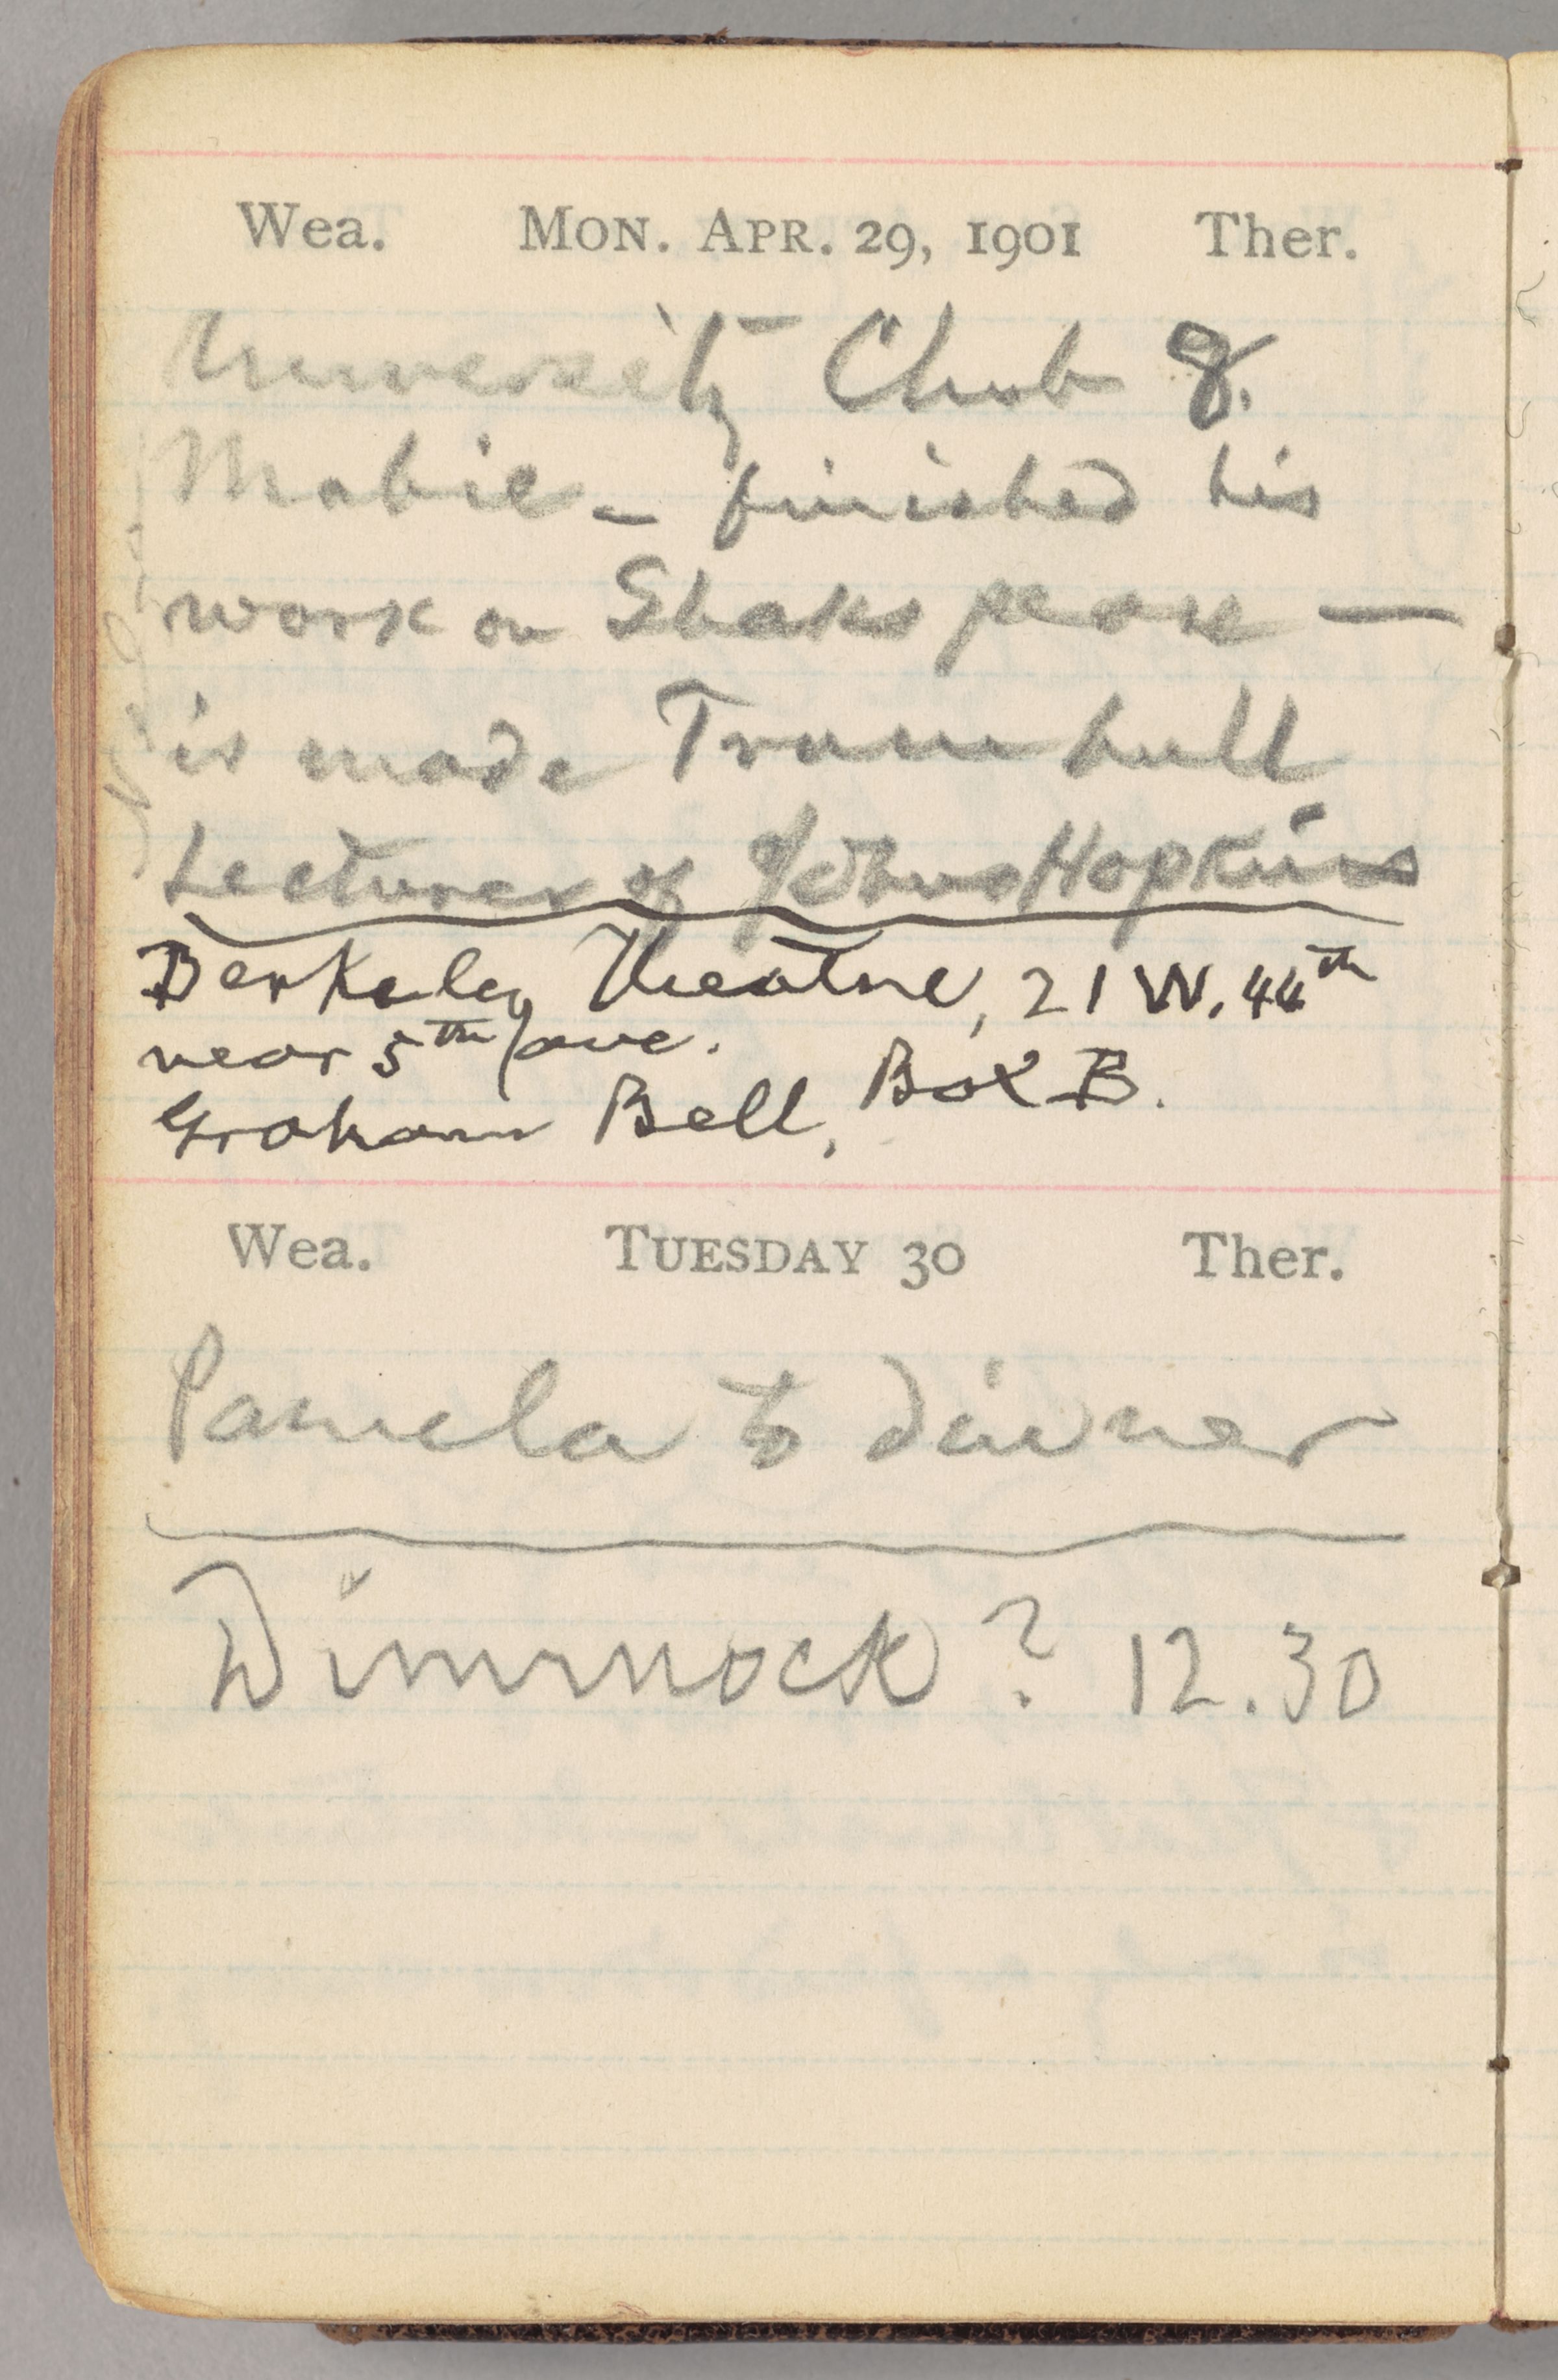 Wea. MON. APR. 29, 1901 Ther.
University Club 8.
Mabie - finished his
work on Shakspeare —
is made Trumbull
Lecturer of Johns Hopkins
Berkeley Theatre, 21 W. 44th
near 5th ave.
Graham Bell, Box B.
Wea. TUESDAY 30 Ther.
Pamela to dinner
Dimmock ? 12.30